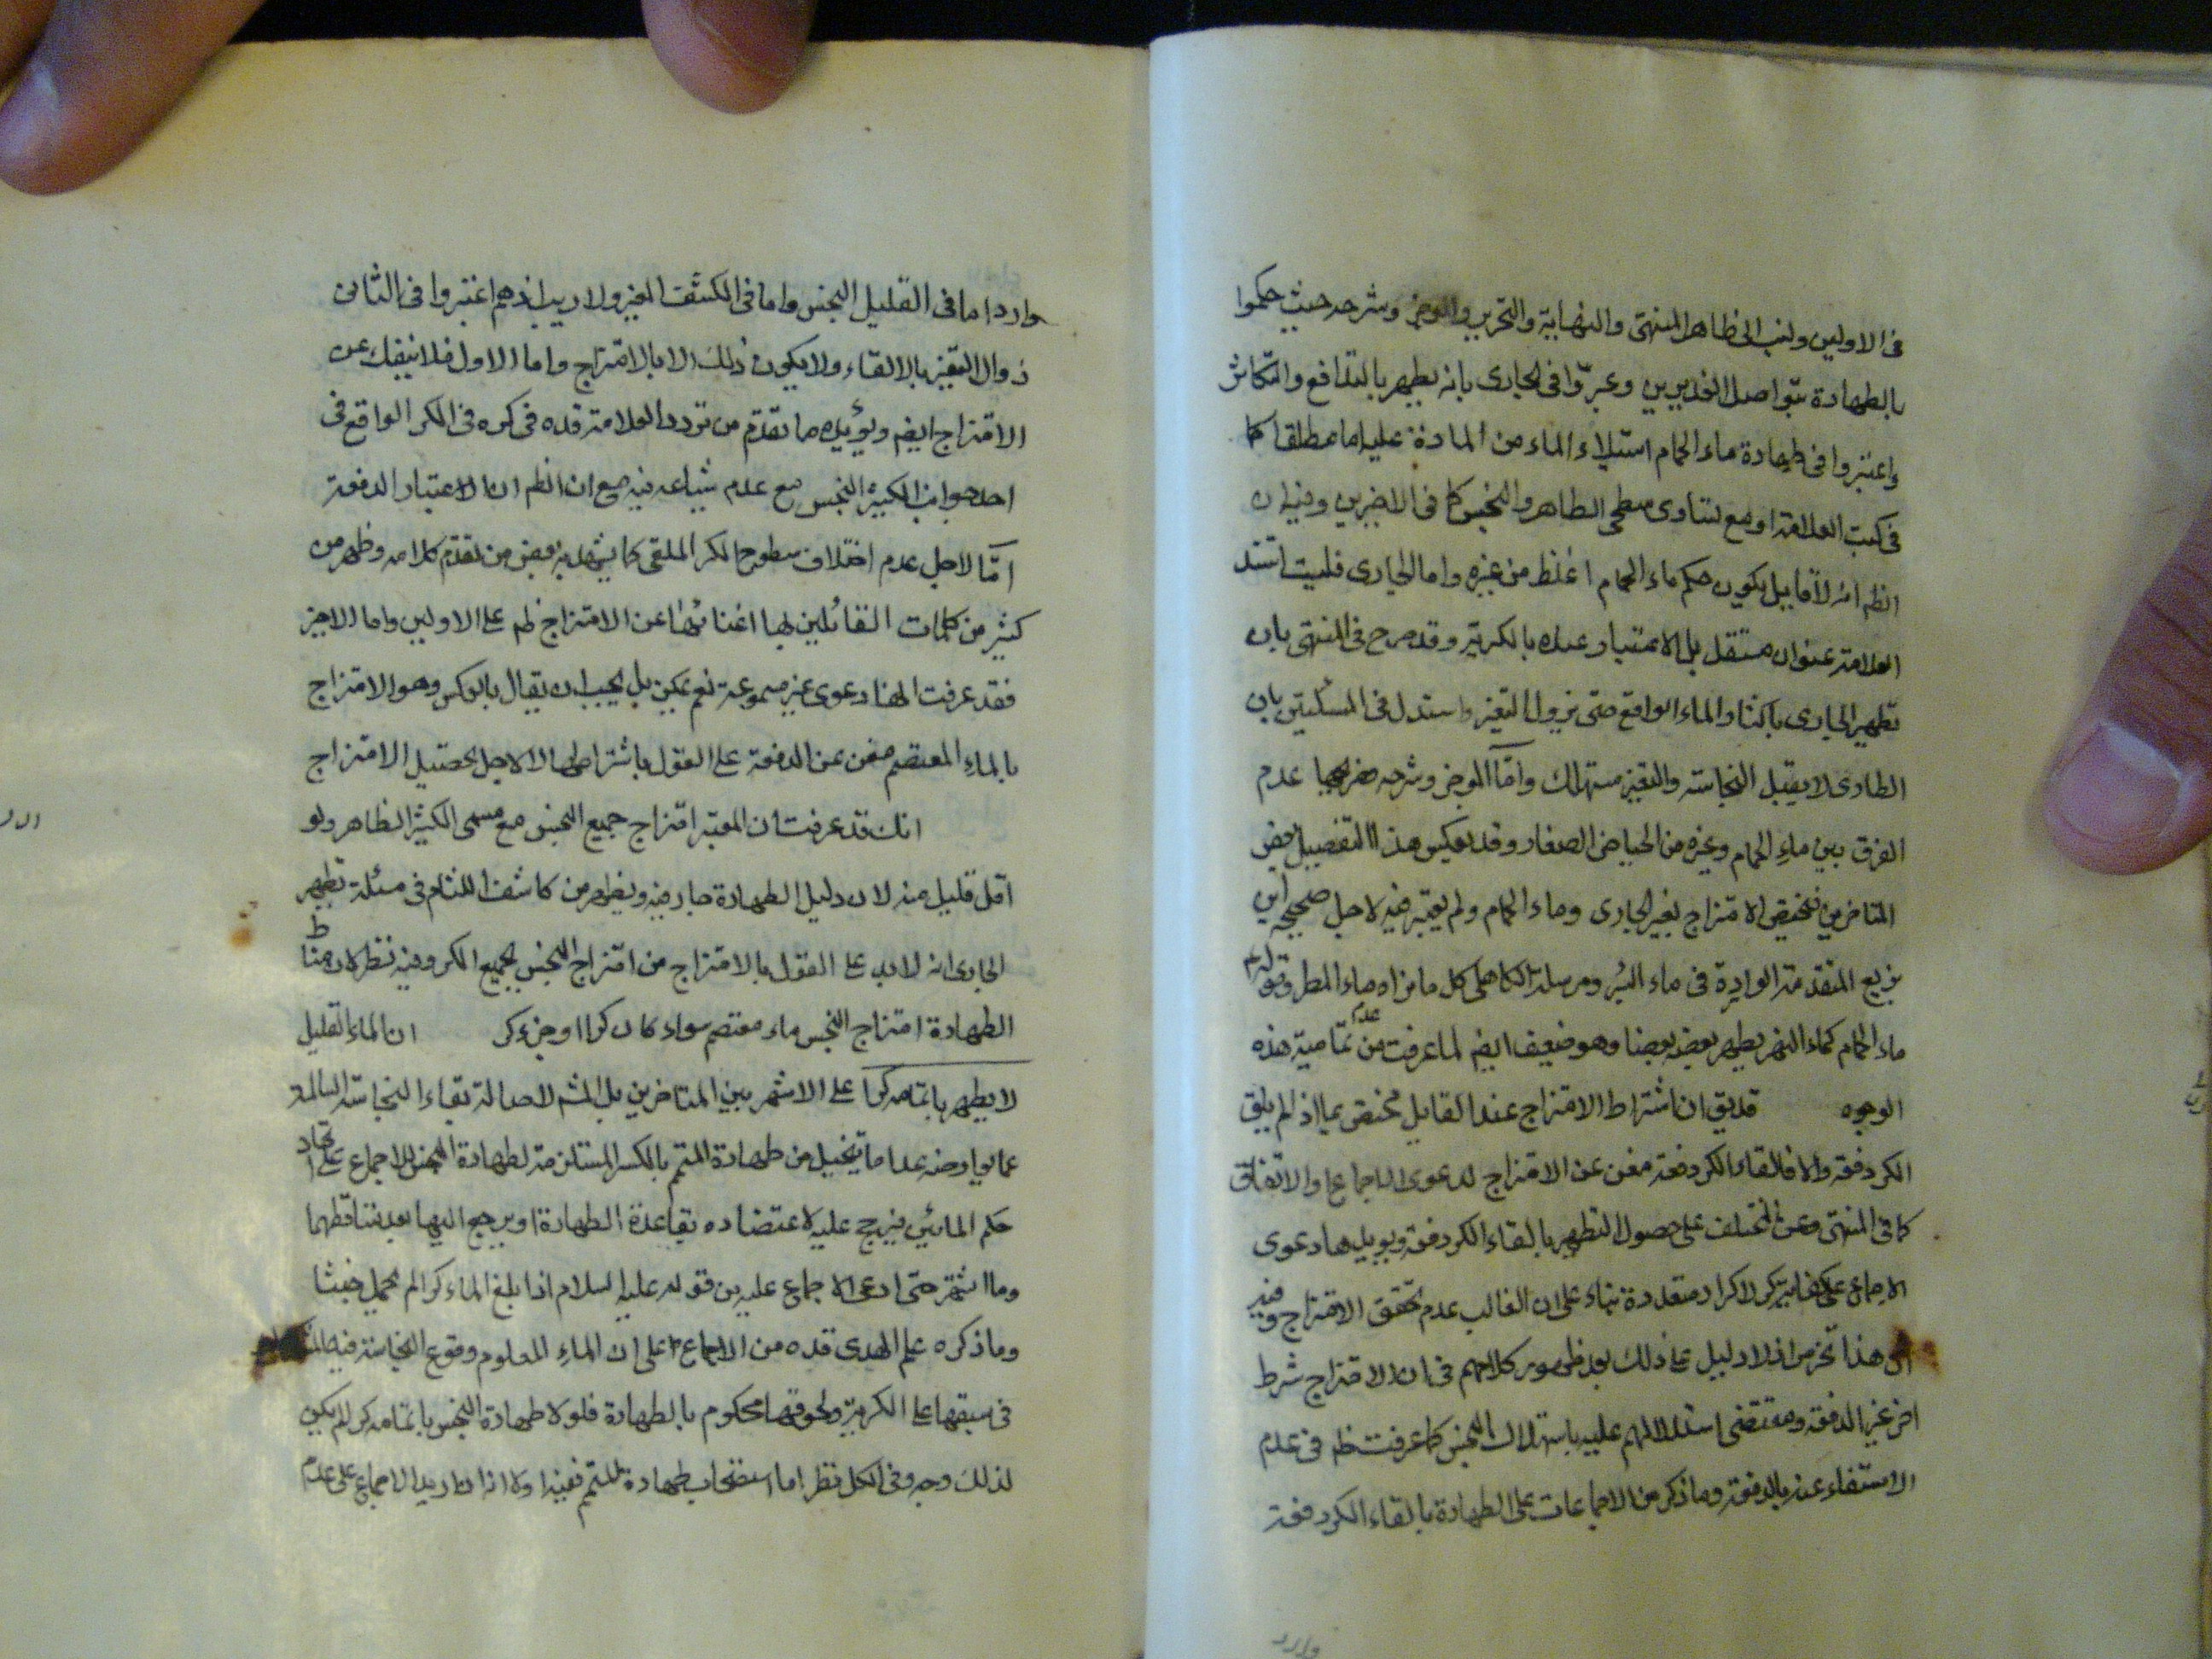 فى الاولين ولنب الى ظاهر المنتهى والنهاية والتحرير والموجز وشرحه حيث حكموا
بالطهارة بتواصل الغديرين وعبروا فى الجارى بانه يطهر بالتدافع والتكاثر
واعتبروا فى طهارة ماء الحمام استيلاء الماء من المادة عليه اما مطلقا كما
فى كتب العلامة او مع تساوى سطحى الطاهر والنجس كما فى الاخيرين وفيه ان
الظم انه لا قايل بكون حكم ماء الحمام اغلظ من غيره واما الجارى فليت اشتد
العلامة عنوان مستقل بل الاعتبار عنده بالكرية وقد صرح فى المنتهى بان
تطهير الجارى باكثار الماء الواقع حتى يزول التغير واستدل فى المسئلتين بان
الطارى لا يقبل النجاسة والتغير مستهلك وامّا الموجز وشرحه عدم
الفرق بين ماء الحمام وغيره من الحياض الصغار وقد يعكس هذا التفصيل بعض
المتاخرين فيختص الامتزاج بغير الجارى وماء الحمام ولم يعتبر فيه لاجل صحيحة ابن
بزيع المتقدمة الواردة فى ماء البئر ومرسلة الكاهلى كل ما يراه ماء المطر وقوله ع
ماء الحمام كماء النهر يطهر بعضه بعضا وهو ضعيف ايضم لما عرفت من عدم تمامية هذه
الوجوه قديق ان اشتراط الامتزاج عند القايل مختص بما اذا لم يلق
الكر دفعة والا فالقاء الكر دفعة مغن عن الامتزاج لدعوى الاجماع والاتفاق
كما فى المنتهى وعن المختلف على حصول التطهير بالقاء الكر دفعة ويؤيدها دعوى
الاجماع على متعددة بناء على ان الغالب عدم تحقق الامتزاج وفيه
ان هذا تخرص اذ لا دليل على ذلك بعد ظهور كلامهم فى ان الامتزاج شرط
اخر غير الدفعة ومقتضى استدلالهم عليه باستهلاك النجس كما عرفت ظم فى عدم
الاستغناء عنه بالدفعة وما ذكر من الاجماعات على الطهارة بالقاء الكر دفعة
وارد
وارد اما فى القليل النجس واما فى الكثير المتغير ولا ريب انهم اعتبروا فى الثانى
زوال التغير بالالقاء ولا يكون ذلك الا بالامتزاج واما الاول فلا ينفك عن
الامتزاج ايضم ويؤيده ما تقدم من تردد العلامة قده فى كره فى الكر الواقع فى
احد جوانب الكثير النجس مع عدم شياعه فيه مع ان الظم ان الاعتبار الدفعة
امّا لاجل عدم اختلاف سطوح الكر الملقى كما يشهد به بعض من تقدم كلامه وظهر من
كثير من كلمات القائلين بها اغنائها عن الامتزاج لم على الاولين واما الاخير
فقد عرفت انها دعوى غير مسموعة نعم يمكن بل يجب ان يقال بالعكس وهو الامتزاج
بالماء المعتصم مغن عن الدفعة على القول باشتراطها لا لاجل تحصيل الامتزاج
انك قد عرفت ان المعتبر امتزاج جميع النجس مع مسمى الكثير الطاهر ولو
اقل قليل منه لان دليل الطهارة جار فيه ويظهر من كاشف اللثام فى مسئلة تطهير
الجارى انه لابد على القول بالامتزاج من امتزاج النجس بجميع الكر وفيه نظر لان مناط
الطهارة امتزاج النجس ماء معتصم سواء كان كرا او جزء كر ان الماء القليل
لا يطهر باتمامه كرا على الاشهر بين المتاخرين بل المشم لاصالة بقاء النجاسة السالمة
عما يعارضه عدا ما يتخيل من طهارة المتمم بالكسر المستلزمة لطهارة النجس للاجماع على اتحاد
حكم المائين فيرجح عليه لاعتضاده بقاعدة الطهارة او يرجع اليها بعد تساقطهما
وما اشتهر حتى ادعى الاجماع عليه من قوله عليه السلام اذا بلغ الماء كرا لم يحمل خبثا
وما ذكره علم الهدى قده من الاجماع على ان الماء المعلوم وقوع النجاسة فيه
فى سبقها على الكرية ولحوقها محكوم بالطهارة فلولا طهارة النجس باتمامه كرا لم يكن
لذلك وجه وفى الكل نظر اما استصحاب طهارة المتمم ففيه اولا انه ان اريد الاجماع على عدم